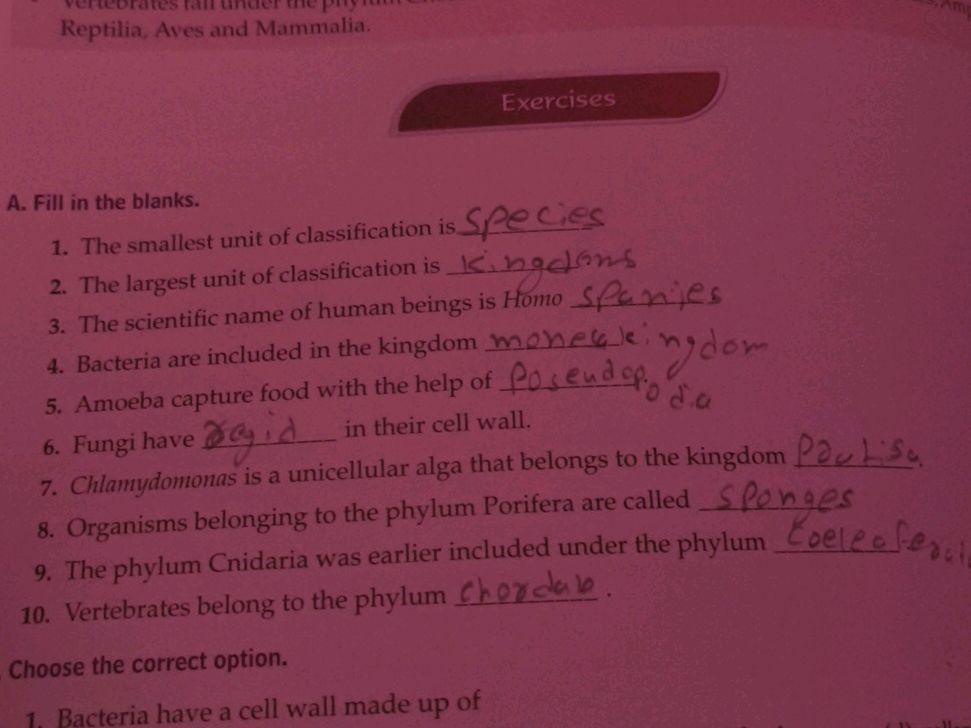 Vertebrates fall under the phylum
Reptilia, Aves and Mammalia.
Exercises
A. Fill in the blanks.
1. The smallest unit of classification is species
2. The largest unit of classification is kingdoms
3. The scientific name of human beings is Homo spanies
4. Bacteria are included in the kingdom kingdom
5. Amoeba capture food with the help of Poseudopodia
6. Fungi have in their cell wall.
7. Chlamydomonas is a unicellular alga that belongs to the kingdom
8. Organisms belonging to the phylum Porifera are called sponges
9. The phylum Cnidaria was earlier included under the phylum
10. Vertebrates belong to the phylum .
Choose the correct option.
1. Bacteria have a cell wall made up of